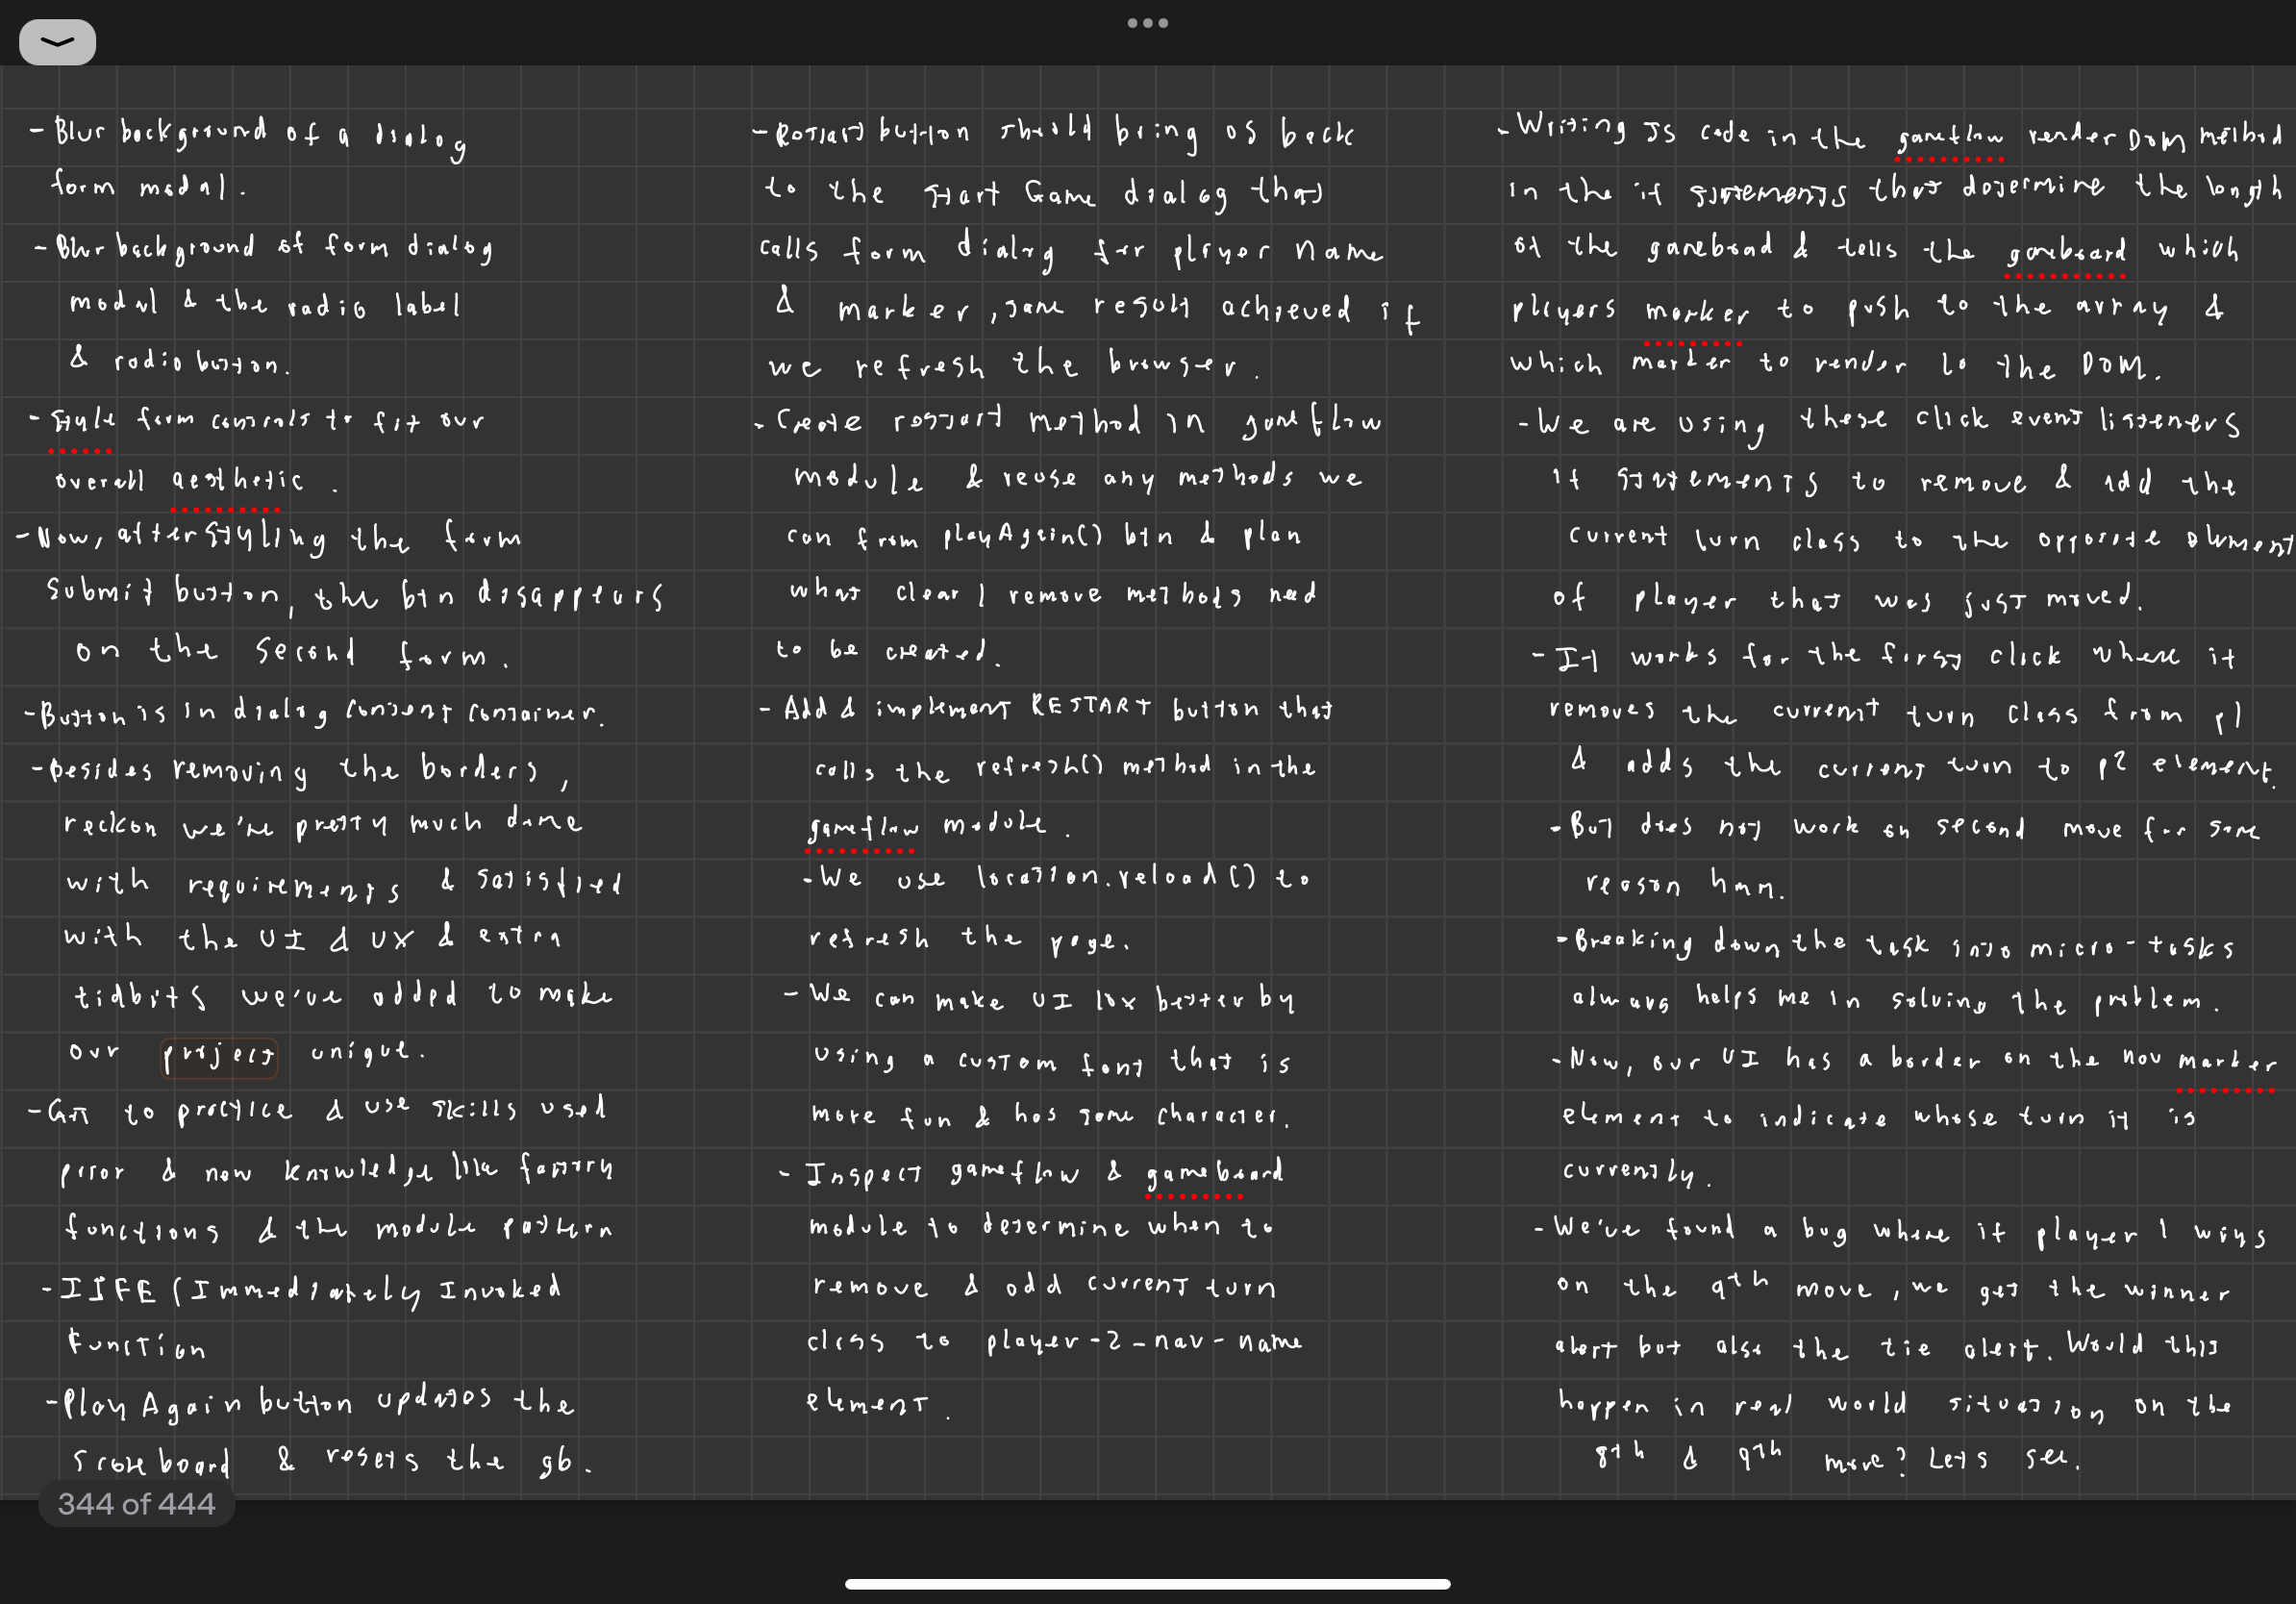 - Blur background of a dialog
form modal.
- Blur background of form dialog
modal & the radio label
& radio button.
- Style form controls to fit our
overall aesthetic.
- Now, after styling the form
submit button, the btn disappears
on the second form.
- Button is in dialog content container.
- Besides removing the borders,
reckon we're pretty much done
with requirements & satisfied
with the UI & UX & extra
tidbits we've added to make
our project unique.
- Got to practice & use skills used
prior & new knowledge like factory
functions & the module pattern
- IIFE (Immediately Invoked
Function
- Play Again button updates the
scoreboard & resets the gb.
- Restart button should bring us back
to the start Game dialog that
calls form dialog for player name
& marker, same result achieved if
we refresh the browser.
- Create restart method in gameflow
module & reuse any methods we
can from playAgain() btn & plan
what clear / remove methods need
to be created.
- Add & implement RESTART button that
calls the refresh() method in the
gameflow module.
- We use location.reload() to
refresh the page.
- We can make UI look better by
using a custom font that is
more fun & has some character.
- Inspect gameflow & gameboard
module to determine when to
remove & add current turn
class to player-2-nav-name
element.
- Writing JS code in the gameflow render DOM method
in the if statements that determine the length
of the gameboad & tells the gameboard which
players marker to push to the array &
which marker to render to the DOM.
- We are using these click event listeners
if statements to remove & add the
current turn class to the opposite element
of player that was just moved.
- It works for the first click where it
removes the current turn class from p1
& adds the current turn to p2 element.
- But does not work on second move for some
reason hmm.
- Breaking down the task into micro-tasks
always helps me in solving the problem.
- Now, our UI has a border on the nav marker
element to indicate whose turn it is
currently.
- We've found a bug where if player 1 wins
on the 9th move, we get the winner
alert but also the tie alert. Would this
happen in real world situation on the
8th & 9th move? Lets see.
344 of 444